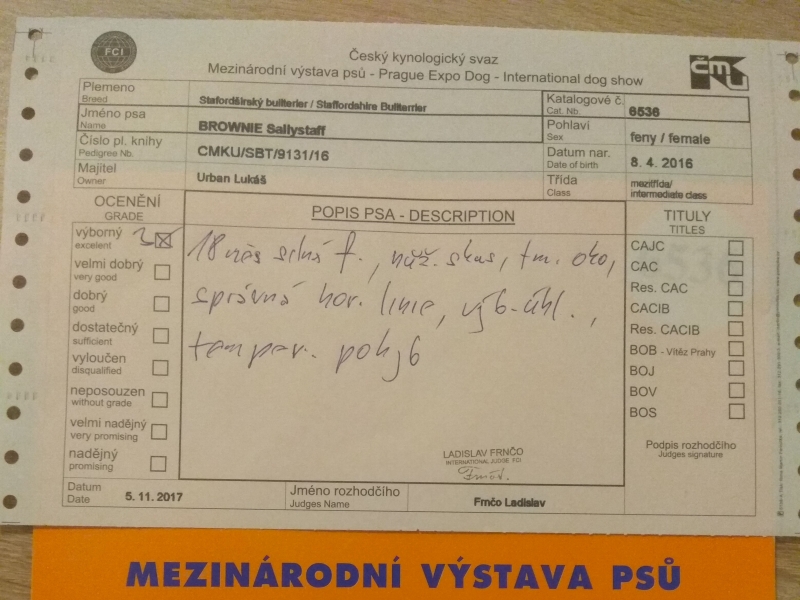 FCI
Český kynologický svaz
Mezinárodní výstava psů - Prague Expo Dog - International dog show
ČMKU
Plemeno
Breed
Stafordšírský bullterier / Staffordshire Bullterrier
Katalogové č.
Cat. Nb.
6536
Jméno psa
Name
BROWNIE Sallystaff
Pohlaví
Sex
feny / female
Číslo pl. knihy
Pedigree Nb.
CMKU/SBT/9131/16
Datum nar.
Date of birth
8. 4. 2016
Majitel
Owner
Urban Lukáš
Třída
Class
mezitřída/
intermediate class
OCENĚNÍ
GRADE
výborný
excelent
velmi dobrý
very good
dobrý
good
dostatečný
sufficient
vyloučen
disqualified
neposouzen
without grade
velmi nadějný
very promising
nadějný
promising
POPIS PSA - DESCRIPTION
18 měs silná f., nůž. skus, tm. oko,
správná hor. linie, výb. úhl.,
temper. pohyb
LADISLAV FRNČO
INTERNATIONAL JUDGE FCI
Frnčo
TITULY
TITLES
CAJC
CAC
Res. CAC
CACIB
Res. CACIB
BOB - Vítěz Prahy
BOJ
BOV
BOS
Podpis rozhodčího
Judges signature
Datum
Date
5. 11. 2017
Jméno rozhodčího
Judges Name
Frnčo Ladislav
MEZINÁRODNÍ VÝSTAVA PSŮ